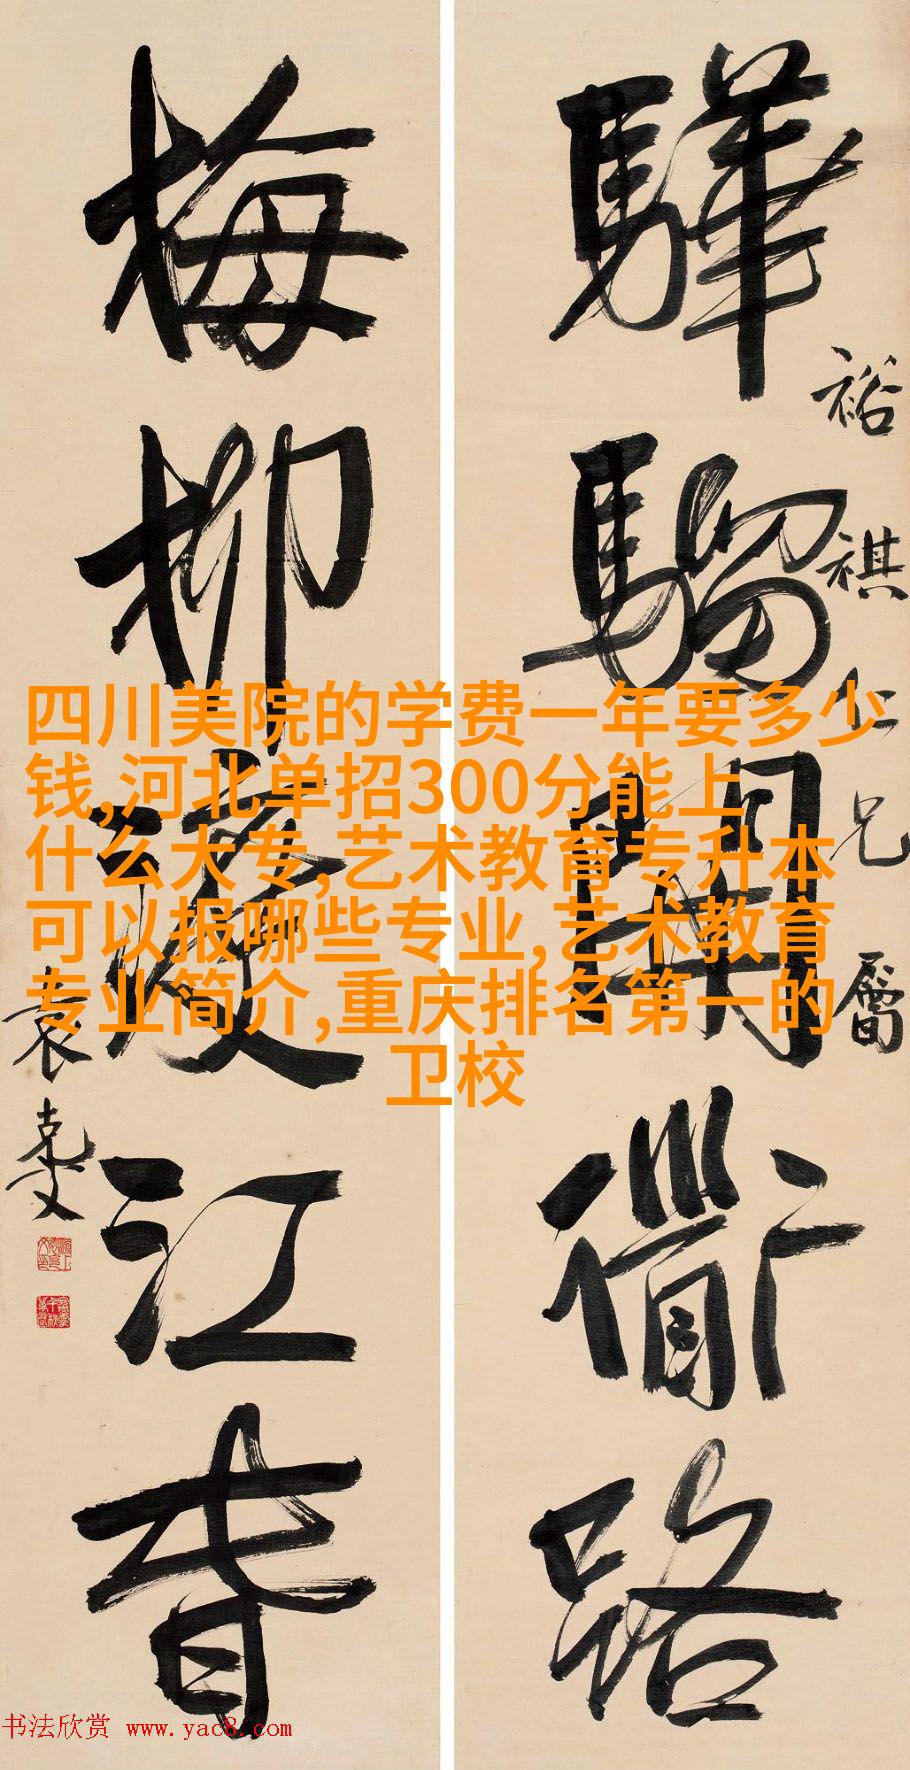 驊騮開衟路
裕祺仁兄屬
梅柳渡江春
袁克文
四川美院的学费一年要多少
钱,河北单招300分能上
什么大专,艺术教育专升本
可以报哪些专业,艺术教育
专业简介,重庆排名第一的
卫校
书法欣赏 www.yac8.com